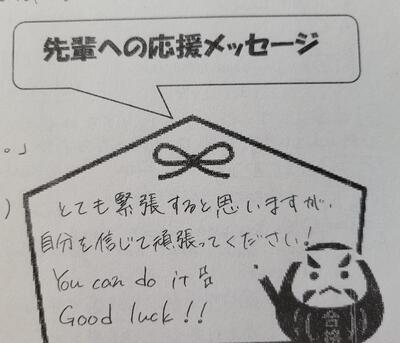 先輩への応援メッセージ
。」
)
とても緊張すると思いますが、
自分を信じて頑張ってください!
You can do it
Good luck!!
合格